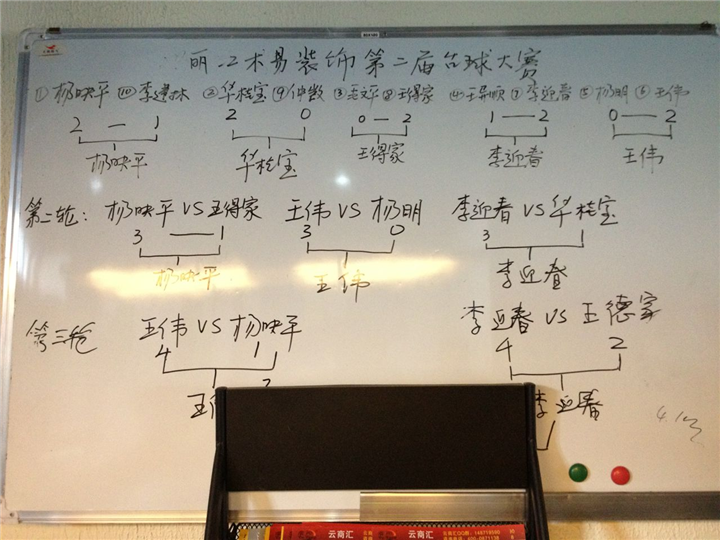 丽江术易装饰第二届台球大赛
①杨映平⑩李建林 ②华桂宝⑨仲敏 ③ 王文平⑧王得家 ④王昇顺⑦李迎春 ⑤杨明⑥王伟
2 — 1 2 0 0 — 2 1 — 2 0 — 2
杨映平 华桂宝 王得家 李迎春 王伟
第二轮: 杨映平 VS 王得家 王伟 VS 杨明 李迎春 VS 华桂宝
3 — 1 3 0 3 1
杨映平 王伟 李迎春
第三轮 王伟 VS 杨映平 李迎春 VS 王德家
4 1 4 2
王 李迎春
云商汇